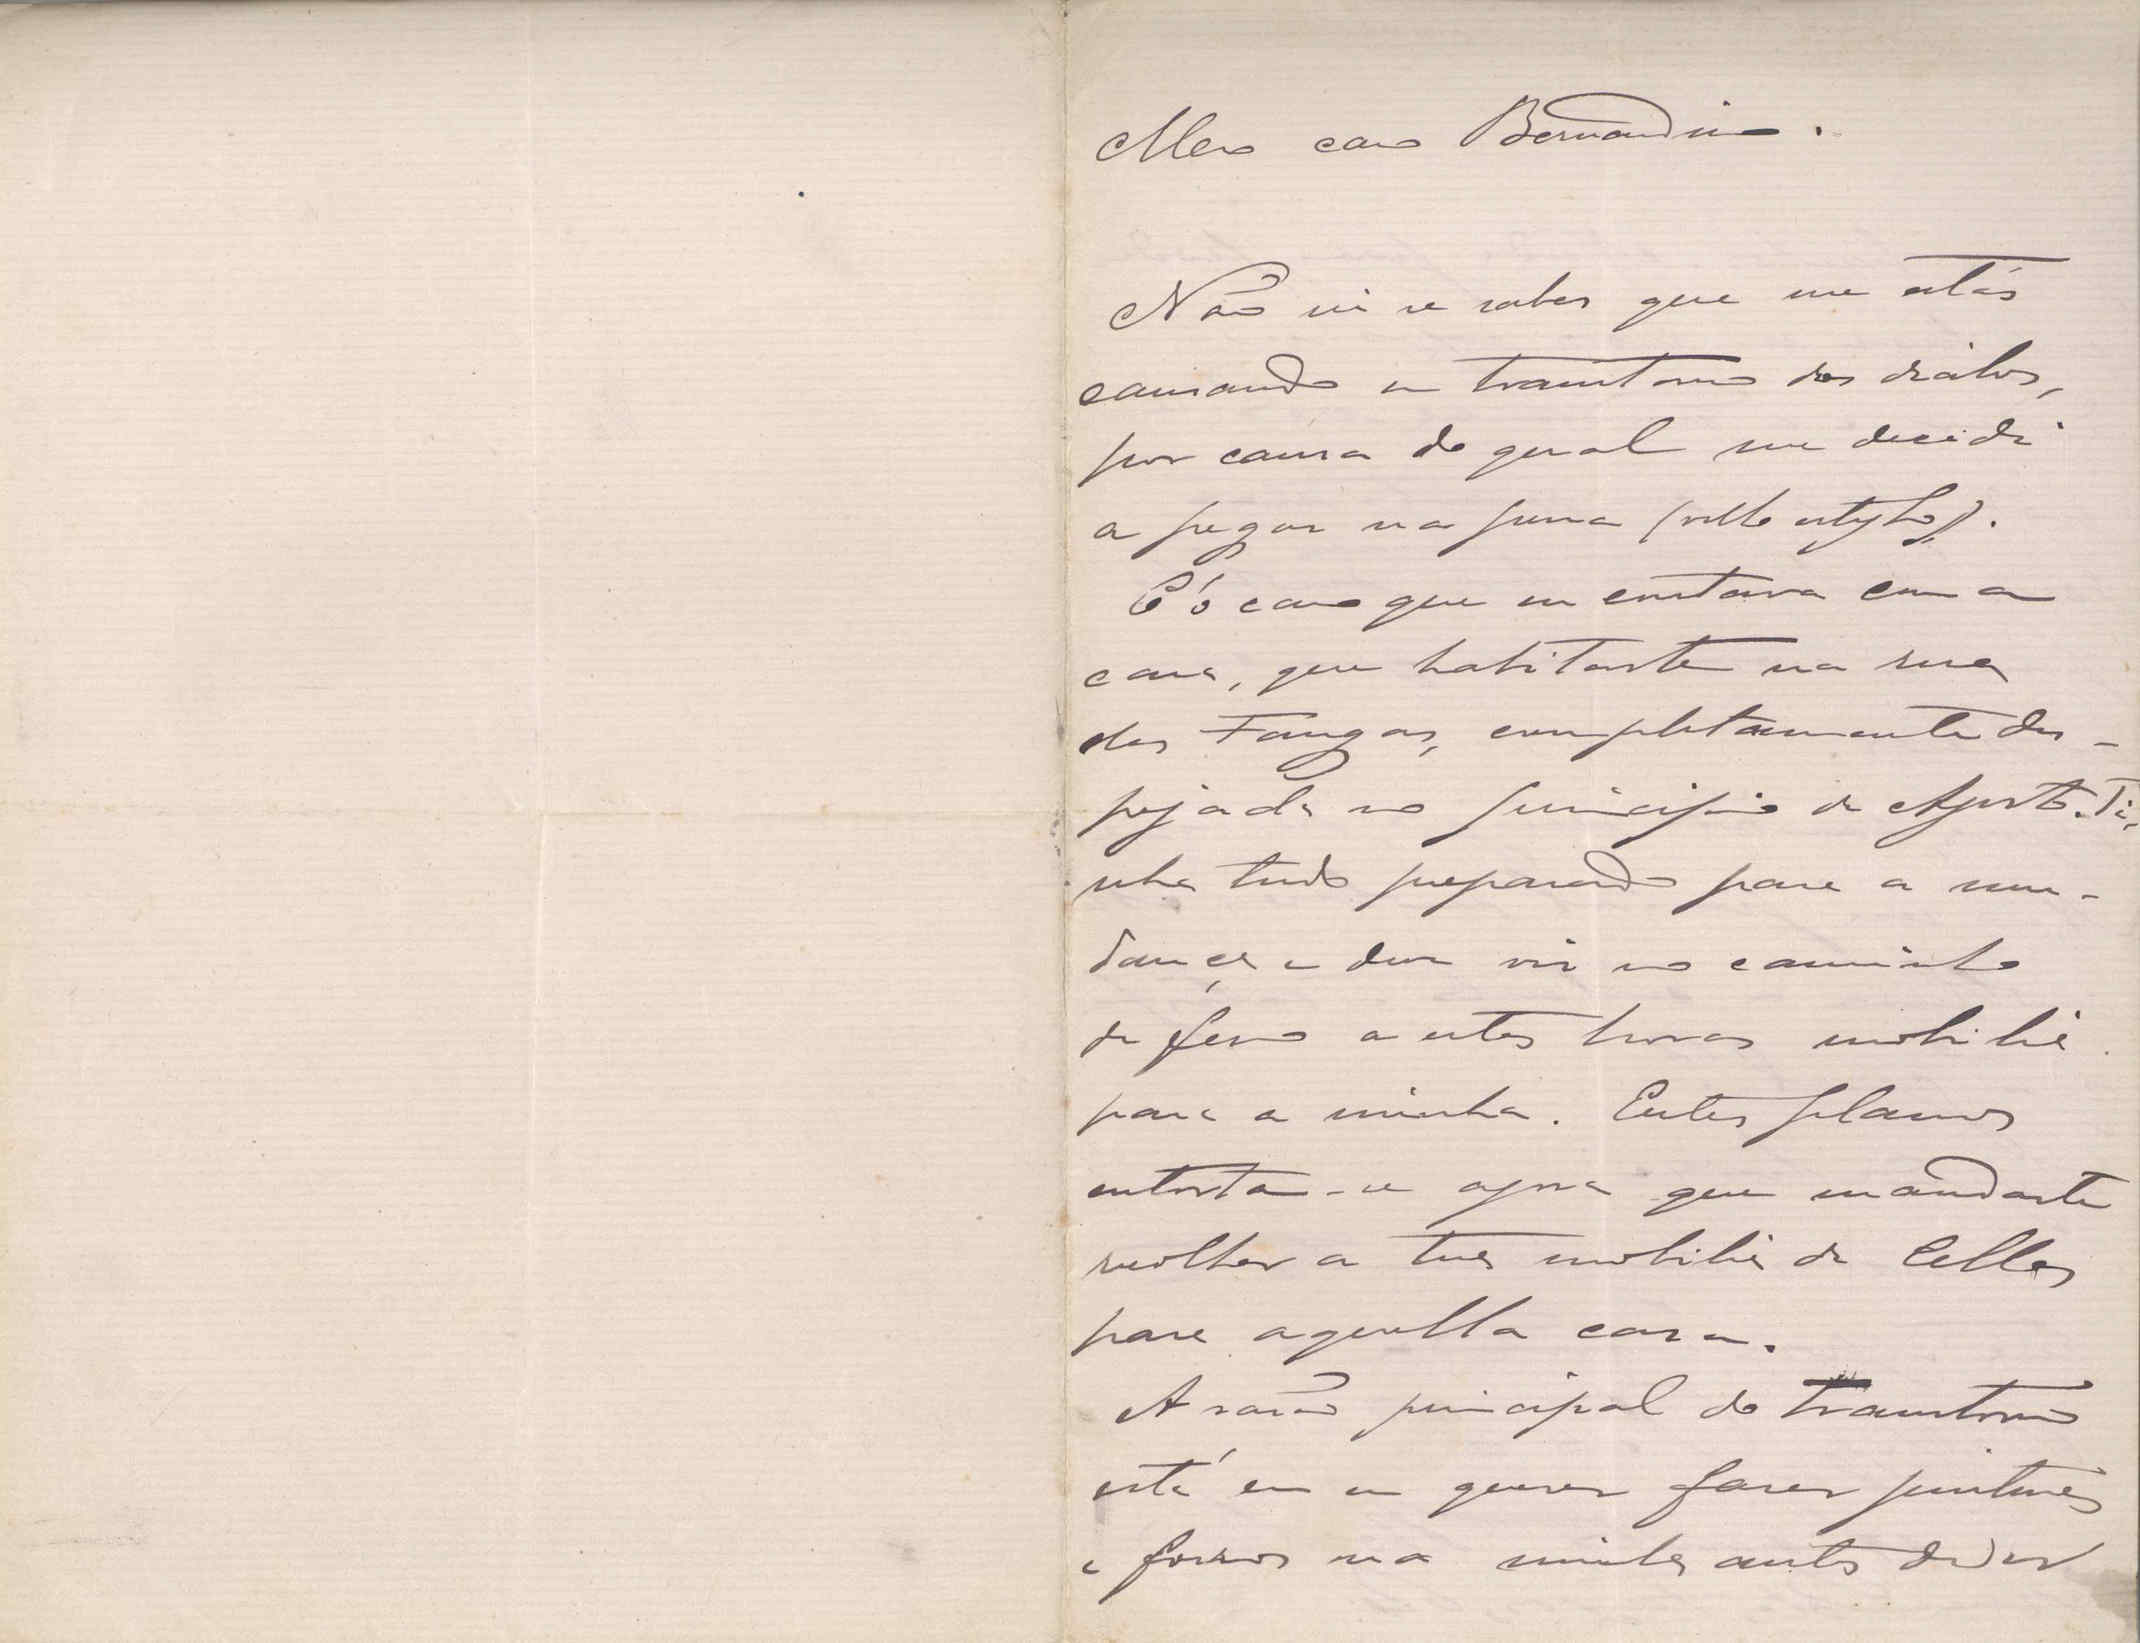 Meu caro Bernardino.
Não sei se sabes que me estás
causando um transtorno dos diabos,
por causa do qual me decidi
a pegar na pena (vello estylo).
É o caso que eu contava com a
casa, que habitaste na rua
das Fangas, completamente des-
pejada no principio de Agosto. Ti-
nha tudo preparado para a mu-
dança e deve vir no caminho
de ferro a estas horas mobilia
para a minha. Estes planos
entorta-se agora que mandaste
recolher a tua mobilia de Cellas
para aquella casa.
A rasão principal do transtorno
está em eu querer faser pinturas
e forros na minha antes de